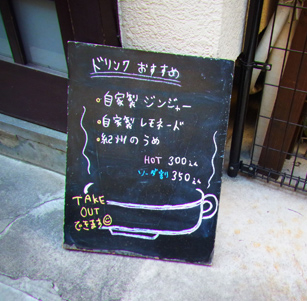 ドリンク おすすめ
自家製 ジンジャー
自家製 レモネード
紀州のうめ
HOT 300
ソーダ割 350
TAKE
OUT
できます